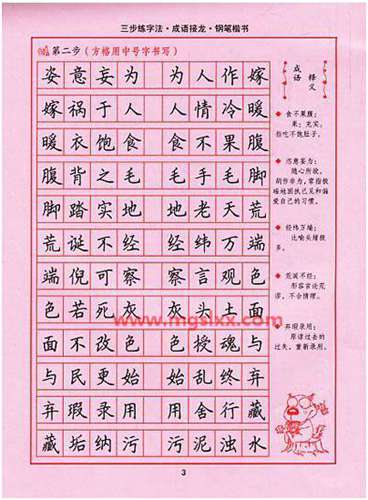 三步练字法·成语接龙·钢笔楷书
第二步（方格用中号字书写）
姿意妄为 为人作嫁
嫁祸于人 人情冷暖
暖衣饱食 食不果腹
腹背之毛 毛手毛脚
脚踏实地 地老天荒
荒诞不经 经纬万端
端倪可察 察言观色
色若死灰 灰头土面
面不改色 色授魂与
与民更始 始乱终弃
弃瑕录用 用舍行藏
藏垢纳污 污泥浊水
成语
释义
食不果腹：
果：充实。
指吃不饱肚子。
恣意妄为：
随心所欲，
胡作非为，常指放
纵地固执己见和偏
爱自己的习惯。
经纬万端：
比喻头绪很
多。
荒诞不经：
形容言论荒
谬，不合情理。
弃瑕录用：
原谅过去的
过失，重新录用。
www.mgslxx.com
3